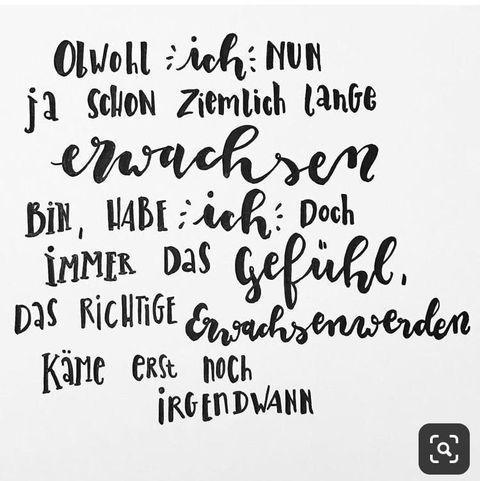 Obwohl ich NUN
ja SCHON Ziemlich Lange
erwachsen
BiN, HABE ich Doch
iMMER DAS Gefühl,
DAS RiCHTiGE Erwachsenwerden
KÄMe eRst noch
iRGENDWANN